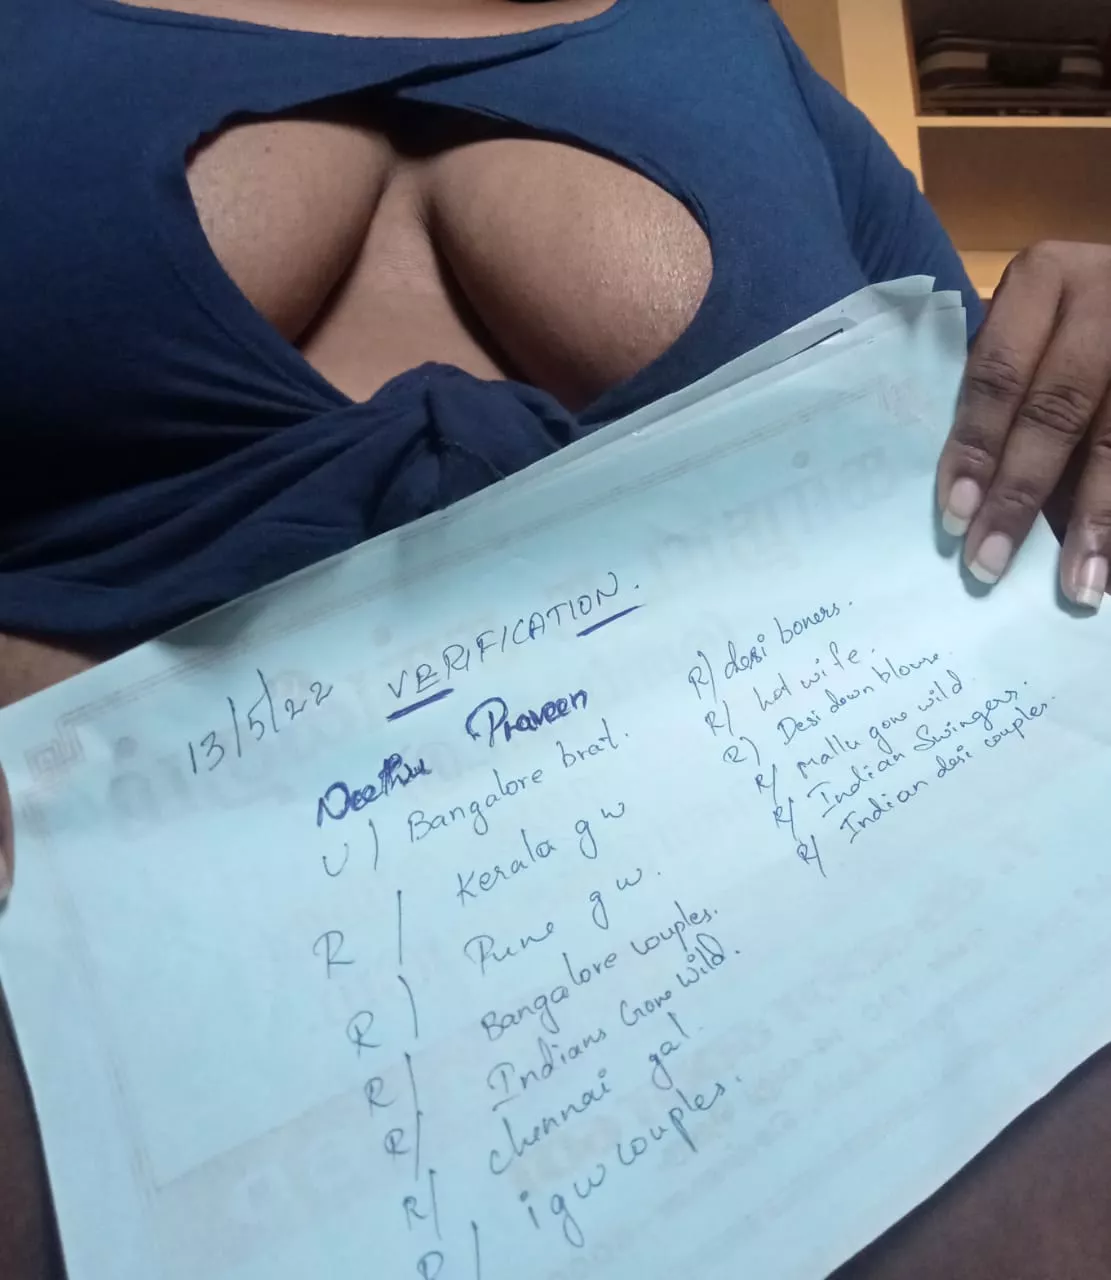 13/5/22 VERIFICATION.
Neethu Praveen
U/ Bangalore brat.
R/ Kerala gw
R/ Pune gw.
R/ Bangalore couples.
R/ Indians Gone Wild.
R/ chennai gal
R/ igw couples.
R/ desi boners.
R/ hot wife.
R/ Desi down blouse.
R/ mallu gone wild
R/ Indian Swingers.
R/ Indian desi couples.